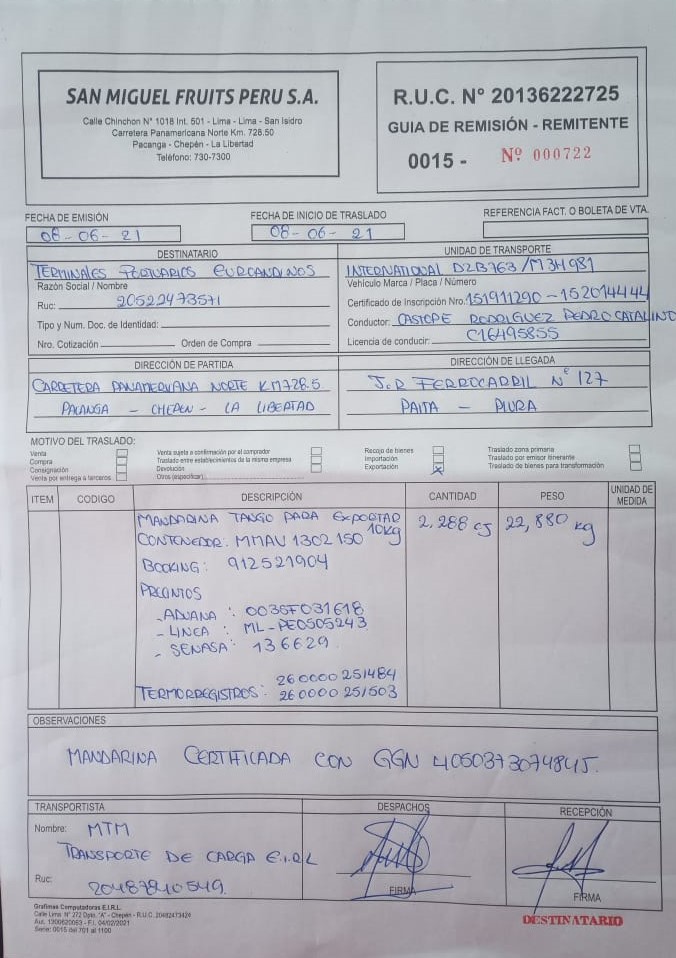 SAN MIGUEL FRUITS PERU S.A.
Calle Chinchon N° 1018 Int. 501 - Lima - Lima - San Isidro
Carretera Panamericana Norte Km. 728.50
Pacanga - Chepén - La Libertad
Teléfono: 730-7300
R.U.C. N° 20136222725
GUIA DE REMISIÓN - REMITENTE
0015 - Nº 000722
FECHA DE EMISIÓN
08-06-21
FECHA DE INICIO DE TRASLADO
08-06-21
REFERENCIA FACT. O BOLETA DE VTA.
DESTINATARIO
TERMINALES PORTUARIOS EUROANDINOS
Razón Social / Nombre
Ruc: 20522473571
Tipo y Num. Doc. de Identidad:
Nro. Cotización Orden de Compra
UNIDAD DE TRANSPORTE
INTERNATIONAL D2B763/M3H981
Vehículo Marca / Placa / Número
Certificado de Inscripción Nro. 151911290-152014444
Conductor: CASTOPE RODRIGUEZ PEDRO CATALINO
Licencia de conducir: C16495855
DIRECCIÓN DE PARTIDA
CARRETERA PANAMERICANA NORTE KM728.5
PACANGA - CHEPEN - LA LIBERTAD
DIRECCIÓN DE LLEGADA
J.R FERROCARRIL N° 127
PAITA - PIURA
MOTIVO DEL TRASLADO:
Venta
Compra
Consignación
Venta por entrega a terceros
Venta sujeta a confirmación por el comprador
Traslado entre establecimientos de la misma empresa
Devolución
Otros (especificar)
Recojo de bienes
Importación
Exportación X
Traslado zona primaria
Traslado por emisor itinerante
Traslado de bienes para transformación
ITEM CODIGO DESCRIPCIÓN CANTIDAD PESO UNIDAD DE MEDIDA
MANDARINA TANGO PARA EXPORTAR 10kg 2,288 cj 22,880 kg
CONTENEDOR. MMAU 1302150
BOOKING: 912521904
PRECINTOS
- ADUANA : 0035F031618
- LINEA : ML-PE0505243
- SENASA: 136629
TERMORREGISTROS: 260000251484
260000251503
OBSERVACIONES
MANDARINA CERTIFICADA CON GGN 4050373074845.
TRANSPORTISTA
Nombre: MTM
TRANSPORTE DE CARGA E.I.R.L
Ruc: 20487840549.
DESPACHOS
FIRMA
RECEPCIÓN
FIRMA
Grafimas Computadoras E.I.R.L.
Calle Lima N° 272 Dpto. "A" - Chepén - R.U.C. 20482473424
Aut. 1300620063 - F.I. 04/02/2021
Serie: 0015 del 701 al 1100
DESTINATARIO